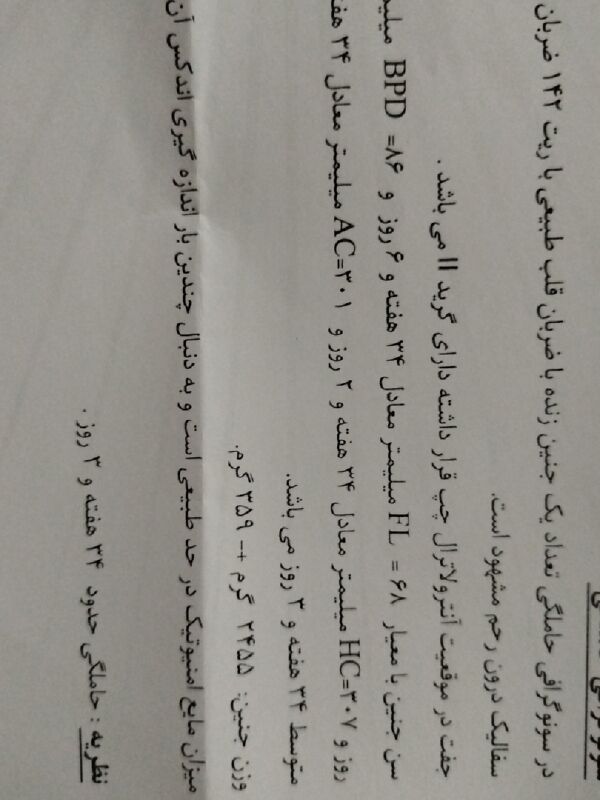 در سونوگرافی حاملگی تعداد یک جنین زنده با ضربان قلب طبیعی با ریت ۱۴۲ ضربان
سفالیک درون رحم مشهود است.
جفت در موقعیت آنترولاترال چپ قرار داشته دارای گرید II می باشد .
سن جنین با معیار FL = ۶۸ میلیمتر معادل ۳۴ هفته و ۶ روز و BPD =۸۶
روز و HC=۳۰۷ میلیمتر معادل ۳۴ هفته و ۲ روز و AC=۳۰۱ میلیمتر معادل ۳۴
متوسط ۳۴ هفته و ۳ روز می باشد.
وزن جنین: ۲۴۵۵ گرم +- ۳۵۹ گرم.
میزان مایع امنیوتیک در حد طبیعی است و به دنبال چندین بار اندازه گیری اندکس آن
نظریه : حاملگی حدود ۳۴ هفته و ۳ روز .